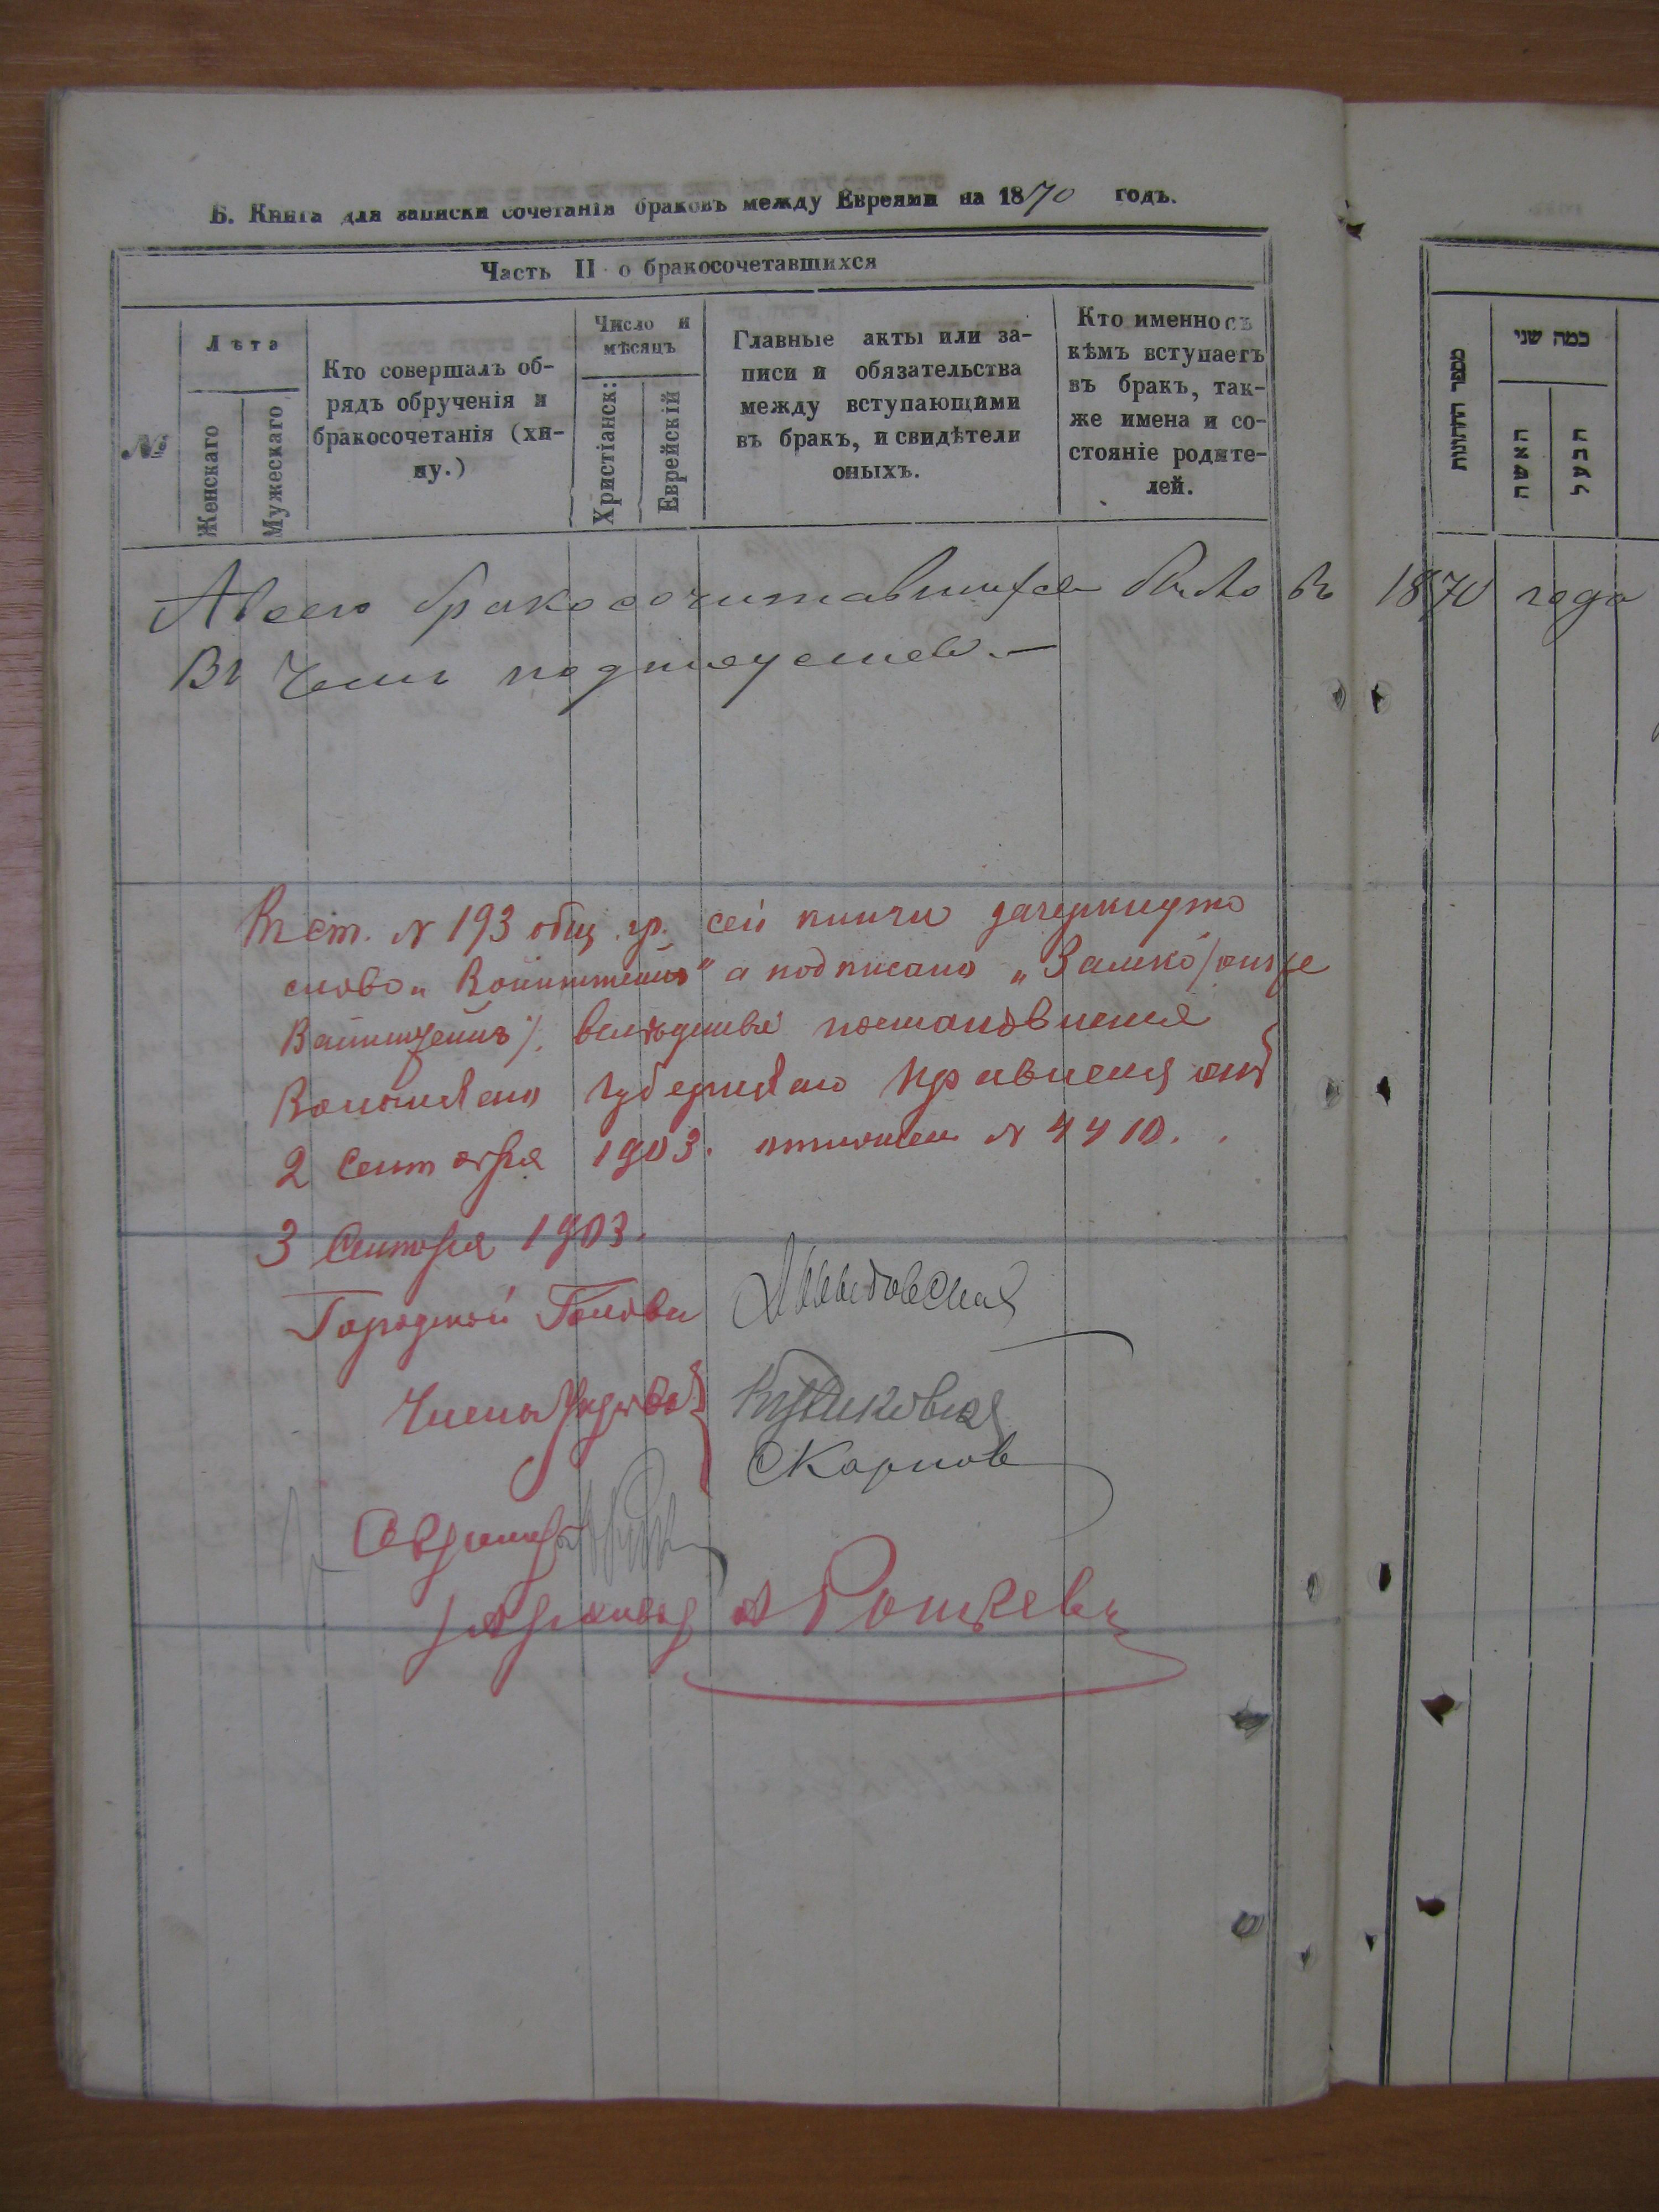 Б. Книга для записки сочетанія браковъ между Евреями на 1870 годъ.
Часть II о бракосочетавшихся
№
Лѣта
Женскаго
Мужескаго
Кто совершалъ об-
рядъ обрученія и
бракосочетанія (хи-
пу.)
Число и
мѣсяцъ
Христіанск:
Еврейскій
Главные акты или за-
писи и обязательства
между вступающими
въ бракъ, и свидѣтели
оныхъ.
Кто именно съ
кѣмъ вступаетъ
въ бракъ, так-
же имена и со-
стояніе родите-
лей.
Авсего бракосочитавшихся было въ 1870 года
Въ чемъ
Въ ст. № 193 общ. гр. сей книги зачеркнуто
слово „Вайнштейнъ" а подписано „Замко /онъ же
Вайнштейнъ/, вслѣдствіе постановленія
губернскаго Правленія отъ
2 Сентября 1903. № 4410.
3 Сентября 1903.
Городской Голова
Члены Управы
Карпов
מספר החתונות
כמה שני
האשה
הבעל